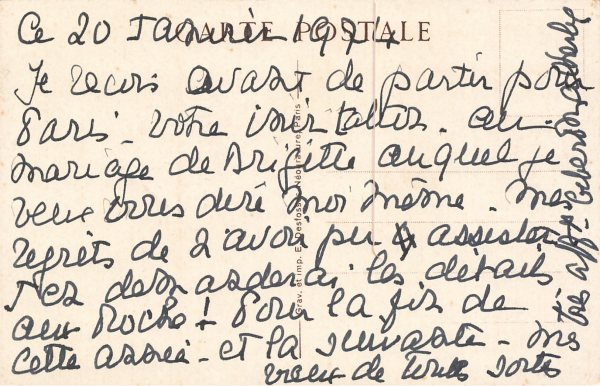 CARTE POSTALE
Ce 20 Janvier 1974
Je reçois avant de partir pour
Paris - votre invitation au
mariage de Brigitte auquel je
veux vous dire moi même - mes
regrets de n'avoir pu y assister
J'en demanderai les détails
aux Roche! Pour la fin de
cette année - et la suivante - mes
vœux de toutes sortes
très afft
Grav. et imp. E. Desfossés-Néogravure, Paris